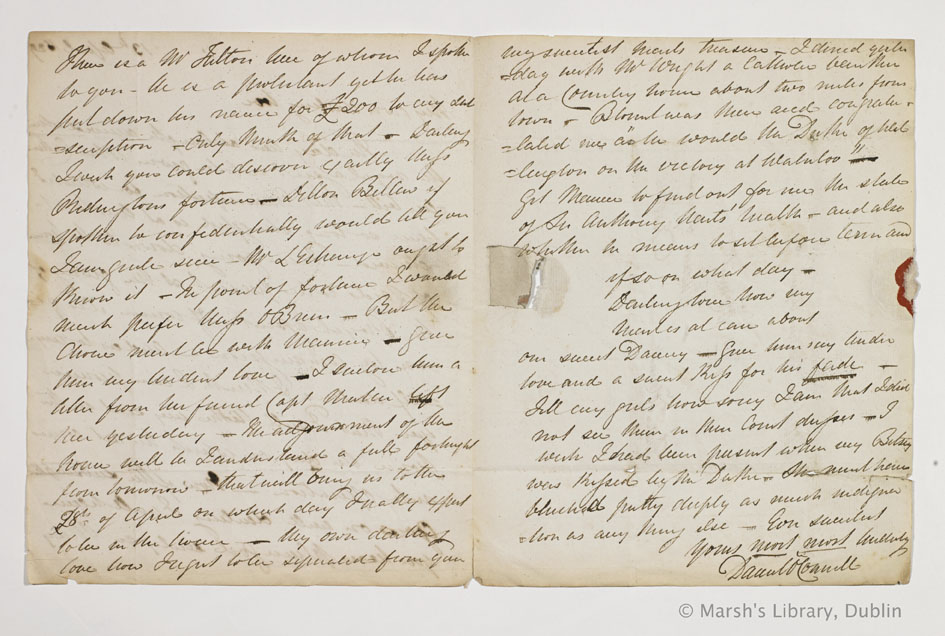 There is a Mr Hutton here of whom I spoke
to you - He is a protestant yet he has
put down his name for £200 to my sub
=scription - Only think of that - Darling
I wish you could discover exactly Miss
fortune - Dillon Bellew if
spoken to confidentially would tell you
I am quite sure - Mr L'Estrange ought to
know it - In point of fortune I would
much prefer Miss O'Brien - But the
choice must be with Maurice - give
him my tenderest love - I enclose him a
letter from his friend Capt left
here yesterday - The adjournment of the
house will be I understand a full fortnight
from tomorrow - that will bring us to the
28th of April on which day I really expect
to be in the house - My own darling
love how I regret to be separated from you
my sweetest heart's treasure - I dined yester
=day with Mr Wright a Catholic banker
at a Country house about two miles from
town - Blount was there and congratu=
=lated me as he would the Duke of Wel
=lington on the victory at Waterloo !!!
Get Maurice to find out for me the state
of Sir Anthony Hart's health - and also
whether he means to sit before term and
if so on what day -
Darling love how my
heart is at ease about
our sweet Danny - Give him my tender
love and a sweet kiss for his
Tell my girls how sorry I am that I did
not see them in their Court dresses - I
wish I had been present when my Betsey
was kissed by the Duke - She must have
blushed pretty deeply as much indigna
=tion as any thing else - Ever sweetest
Yours most most tenderly
Daniel O'Connell
© Marsh's Library, Dublin